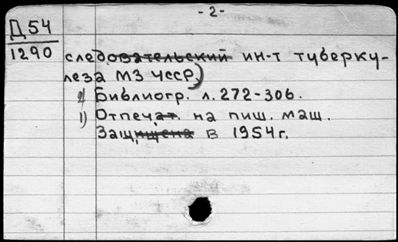 - 2 -
Д 54
1290
следовательский ин-т туберку-
леза МЗ УССР)
2) Библиогр. л. 272-306.
1) Отпечат. на пиш. маш.
Защищена в 1954 г.